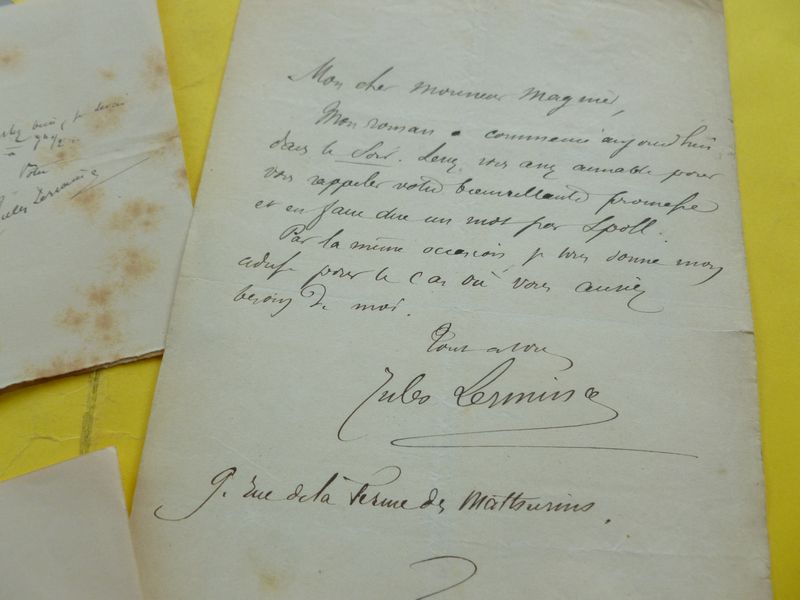 Mon cher monsieur Magnier,
Mon roman a commencé aujourd'hui
dans le Soir. Serez vous assez aimable pour
vous rappeler votre bienveillante promesse
et en faire dire un mot par Spoll.
Par la même occasion je vous donne mon
adresse pour le cas où vous auriez
besoin de moi.
Tout à vous
Jules Lermina
9. rue de la Ferme des Mathurins.
Jules Lermina